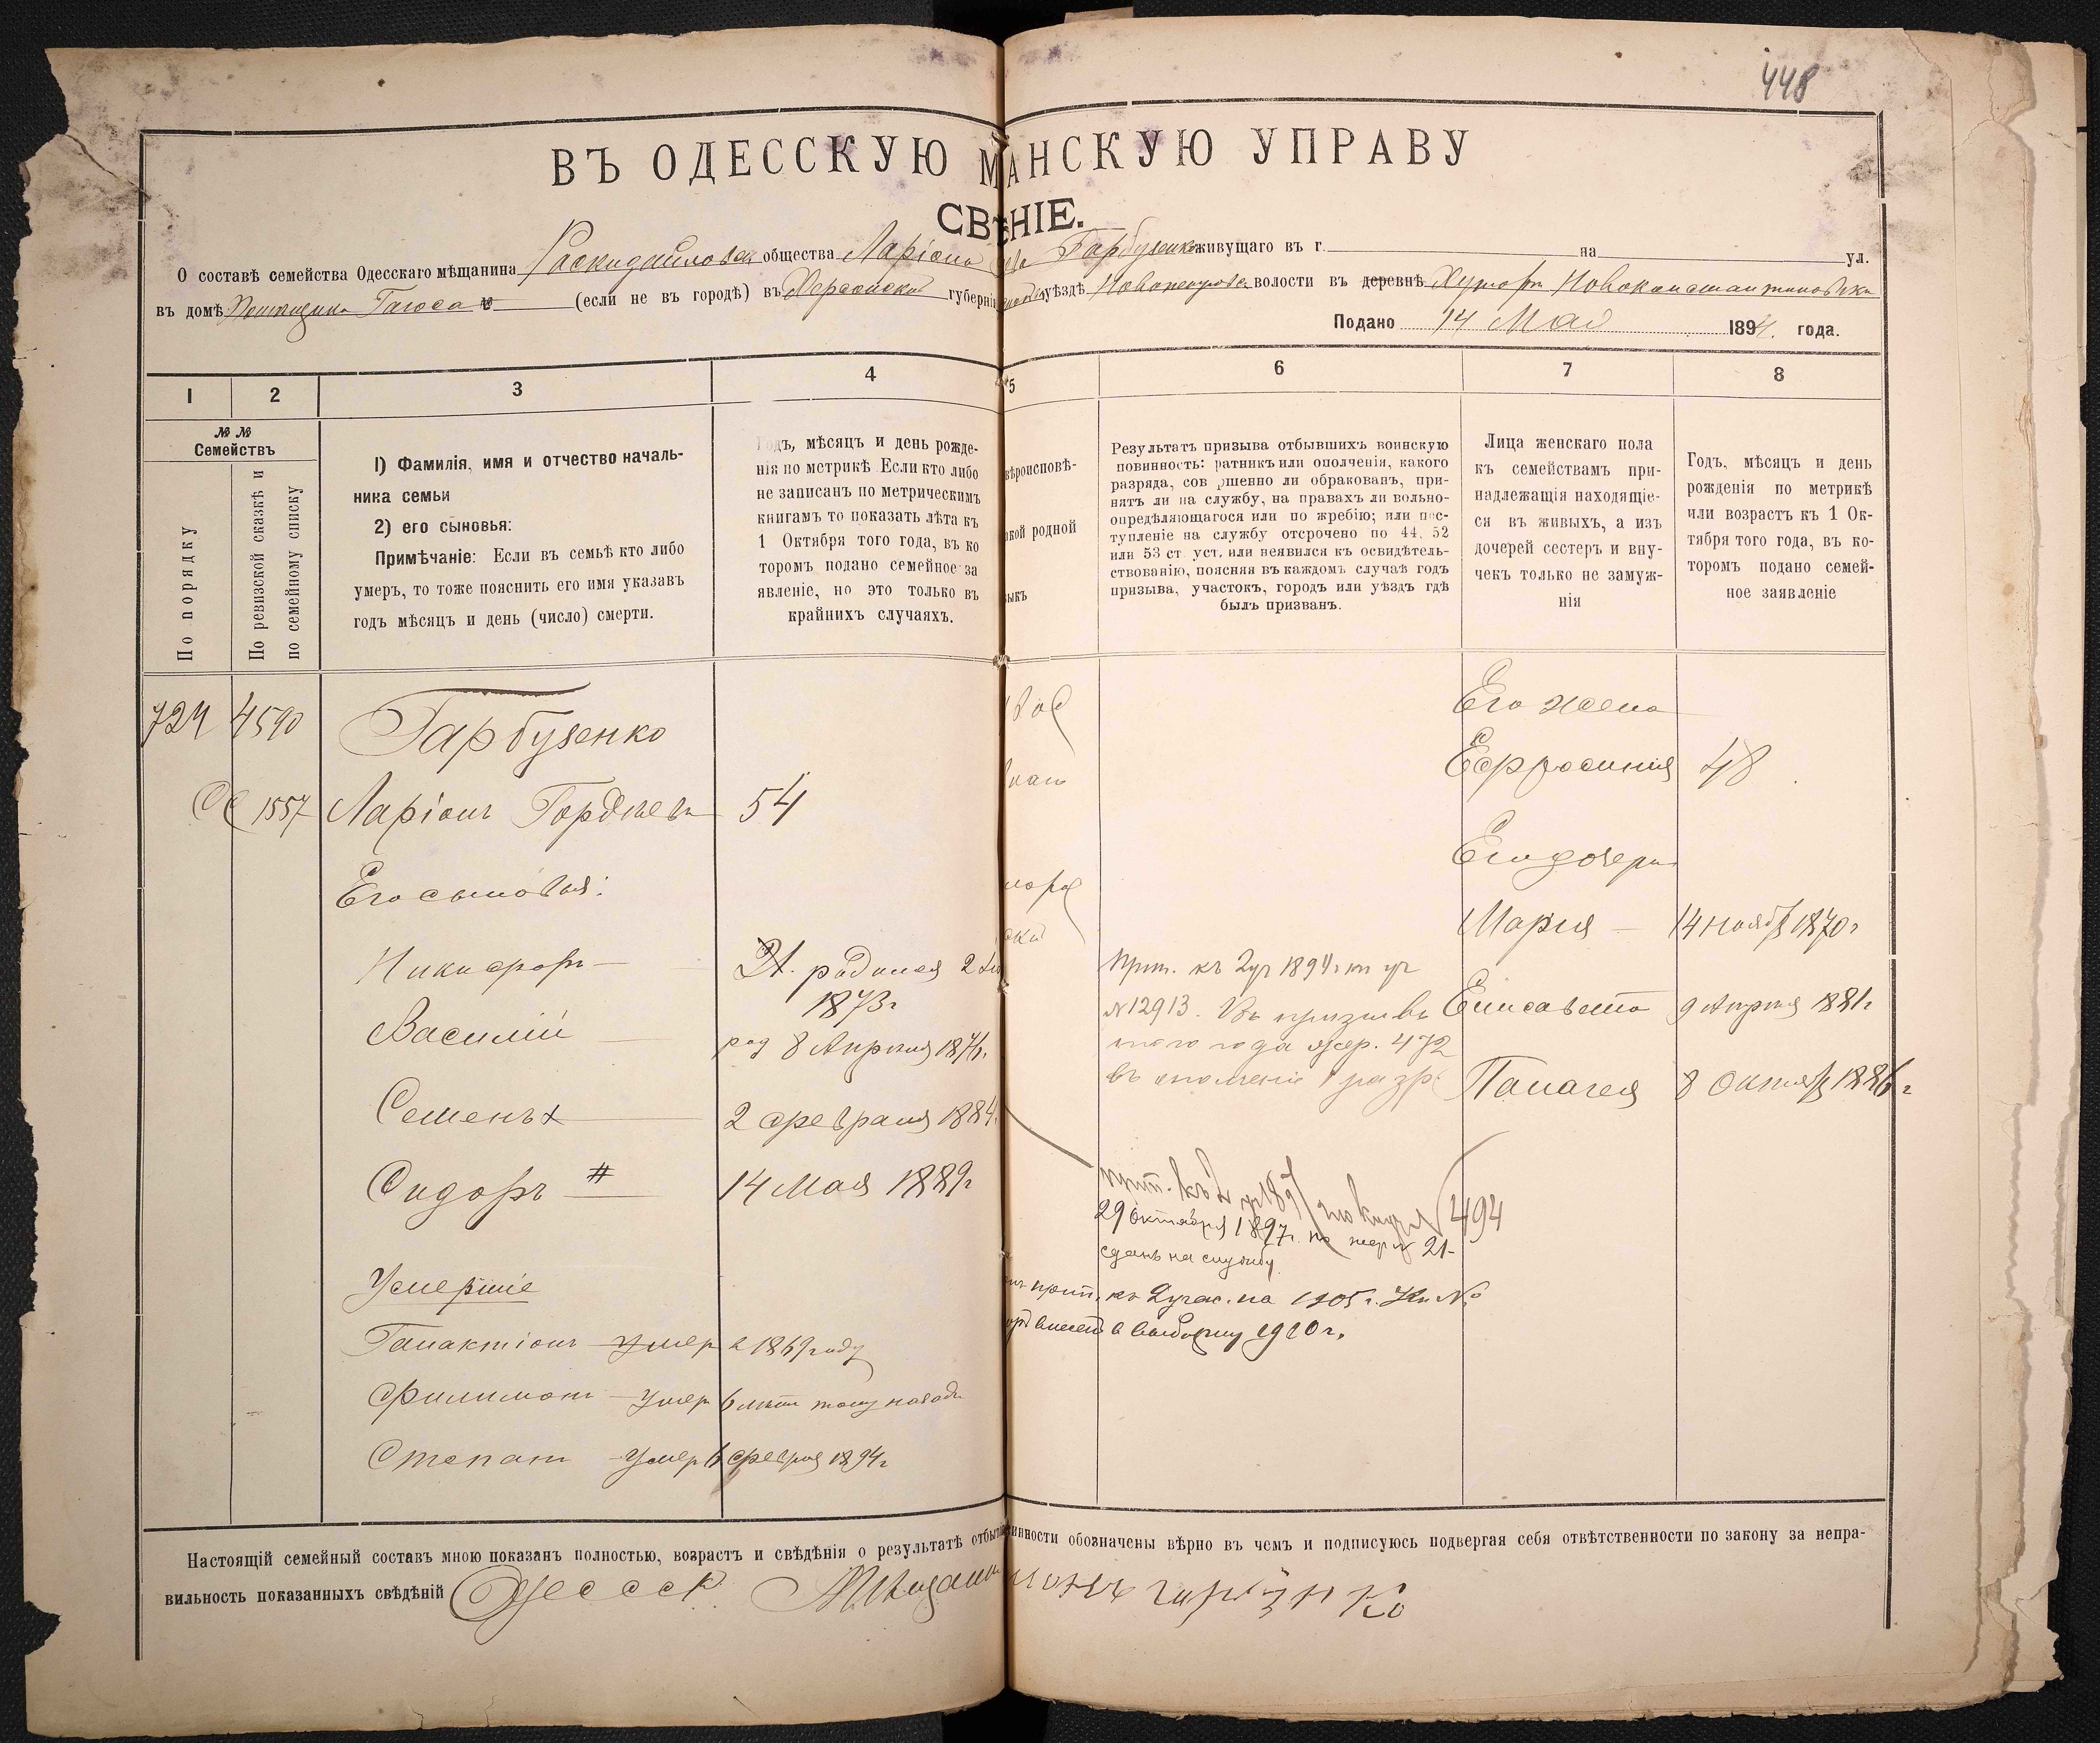 448
ВЪ ОДЕССКУЮ М АНСКУЮ УПРАВУ
СВ НІЕ.
О составѣ семейства Одесскаго мѣщанина Раскидайловск общества Ларіона Гарбузенко живущаго въ г. на ул.
въ домѣ (если не въ городѣ) въ Херсонской губерніи уѣздѣ Новопетровск волости въ деревнѣ Хуторъ Новоконстантиновка
Подано 14 Мая 1894. года.
1 2 3 4 5 6 7 8
№№ Семействъ
По порядку
По ревизской сказкѣ и по семейному списку
1) Фамилія, имя и отчество началь-
ника семьи
2) его сыновья:
Примѣчаніе: Если въ семьѣ кто либо
умеръ, то тоже пояснить его имя указавъ
годъ мѣсяцъ и день (число) смерти.
Годъ, мѣсяцъ и день рожде-
нія по метрикѣ Если кто либо
не записанъ по метрическимъ
книгамъ то показать лѣта къ
1 Октября того года, въ ко
торомъ подано семейное за
явленіе, но это только въ
крайнихъ случаяхъ.
вѣроисповѣ-
кой родной
зыкъ
Результатъ призыва отбывшихъ воинскую
повинность: ратникъ или ополченія, какого
разряда, сов ршенно ли обракованъ, при-
нятъ ли на службу, на правахъ ли вольно-
опредѣляющагося или по жребію; или пос-
тупленіе на службу отсрочено по 44. 52
или 53 ст. уст. или неявился къ освидѣтель-
ствованію, поясняя въ каждомъ случаѣ годъ
призыва, участокъ, городъ или уѣздъ гдѣ
былъ призванъ.
Лица женскаго пола
къ семействамъ при-
надлежащія находящіе-
ся въ живыхъ, а изъ
дочерей сестеръ и вну-
чекъ только не замуж-
нія
Годъ, мѣсяцъ и день
рожденія по метрикѣ
или возрастъ къ 1 Ок-
тября того года, въ ко-
торомъ подано семей-
ное заявленіе
724 4590 Гарбузенко
Его жена
Ефросинія 48
1557 Ларіонъ Гордѣевъ 54
Его дочери
Его сыновья:
Марія 14 ноябр 1870 г
Никифоръ 21. родился 2
1873 г
Прип. къ 2 уч 1894 г
№ 12913. Въ призывъ
того года жер. 472
въ ополченіе 1 разр
Елисавета 9 Апрѣля 1881 г
Василій род 8 Апрѣля 1876.
Палагея 8 Октяб 1886 г
Семенъ 2 февраля 1884
Сидоръ # 14 Мая 1889 г
494
29 октября 1897 г. по жер № 21
сданъ на службу
прип. къ 2 учас. на 1905 г.
1910 г.
Умершіе
Галактіонъ умер в 1869 году
Филимонъ умер 6 лѣтъ тому назадъ
Степанъ умер в феврл 1894 г
Настоящій семейный составъ мною показанъ полностью, возрастъ и свѣдѣнія о результатѣ отбы инности обозначены вѣрно въ чемъ и подписуюсь подвергая себя отвѣтственности по закону за непра-
вильность показанныхъ свѣдѣній Одесск. Мѣщани